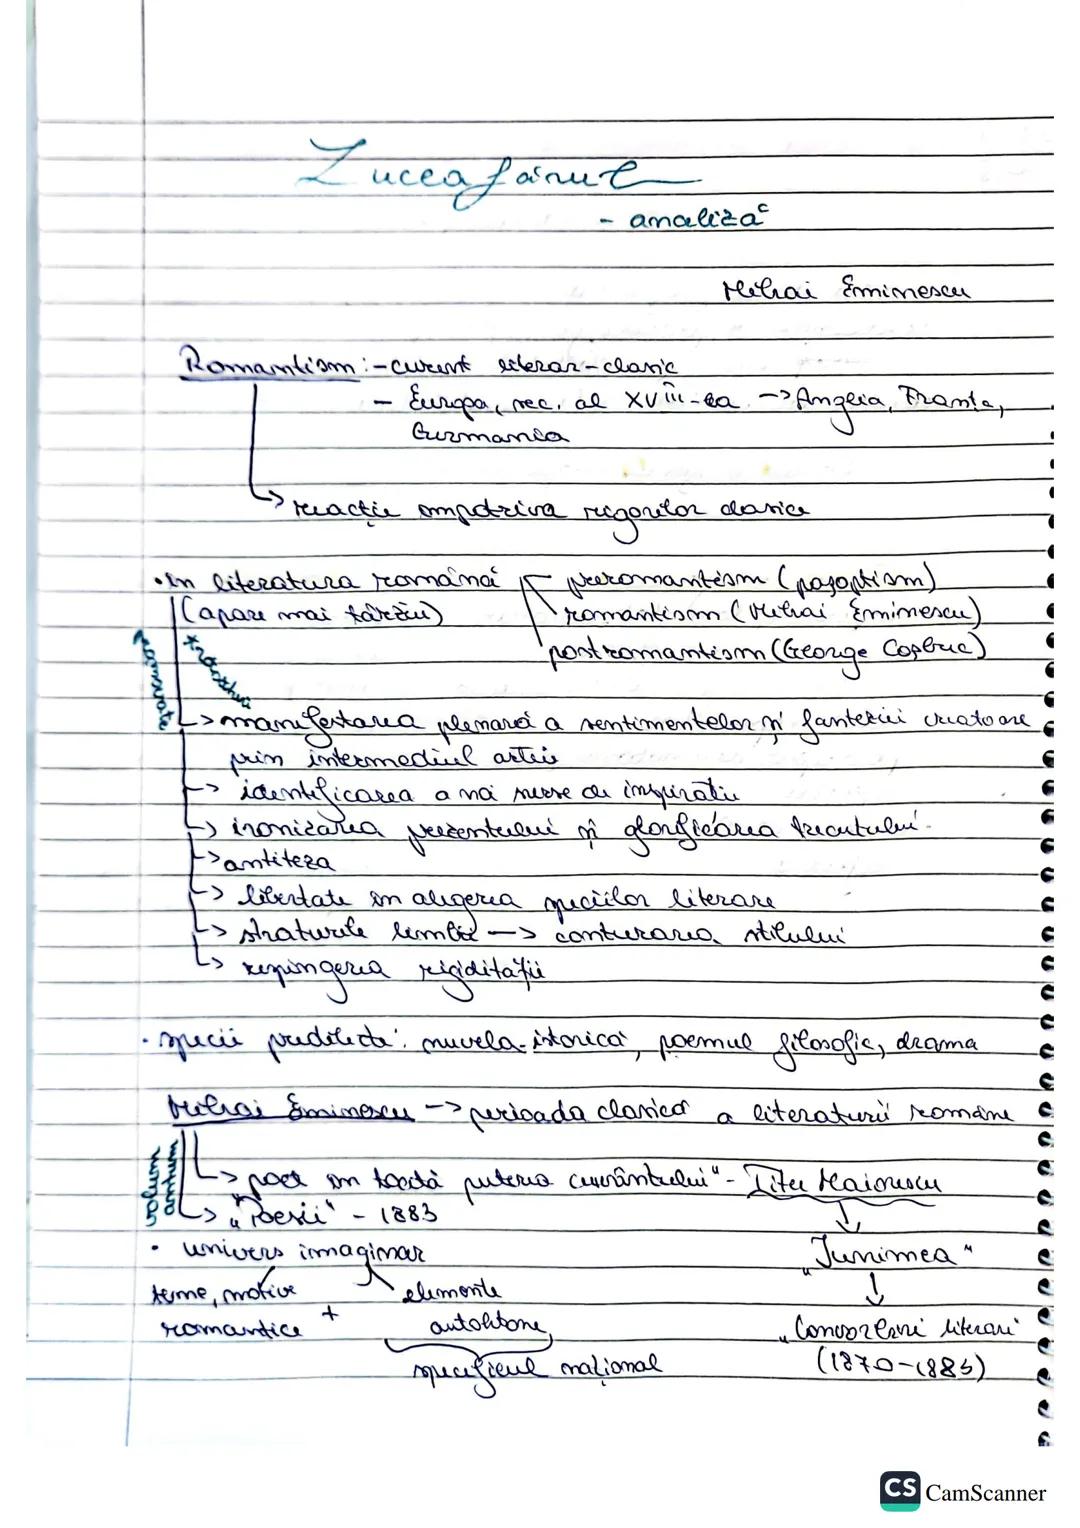 Luceafărul
- analiză
Mihai Eminescu
Romantism: - curent literar-clasic
- Europa, sec. al XVIII-lea -> Anglia, Franța,
Germania
-> reacție împotriva rigorilor clasice
• În literatura română
preromantism (pașoptism)
(apare mai târziu)
romantism (Mihai Eminescu)
postromantism (George Coșbuc)
trăsături
-> manifestarea plenară a sentimentelor și fanteziei creatoare
prin intermediul artei
-> identificarea a noi surse de inspirație
-> ironizarea prezentului și glorificarea trecutului.
-> antiteza
-> libertate în alegerea speciilor literare
-> straturile limbii -> conturarea stilului
-> respingerea rigidității
• specii predilecte: nuvela-istorică, poemul filosofic, drama
Mihai Eminescu -> perioada clasică a literaturii române
-> poet în toată puterea cuvântului" - Titu Maiorescu
volum
antum
-> „Poesii" - 1883
• univers imaginar
„Junimea"
teme, motive
elemente
romantice + autohtone,
„Convorbiri literare"
specificul național
(1870-1885)
CS CamScanner